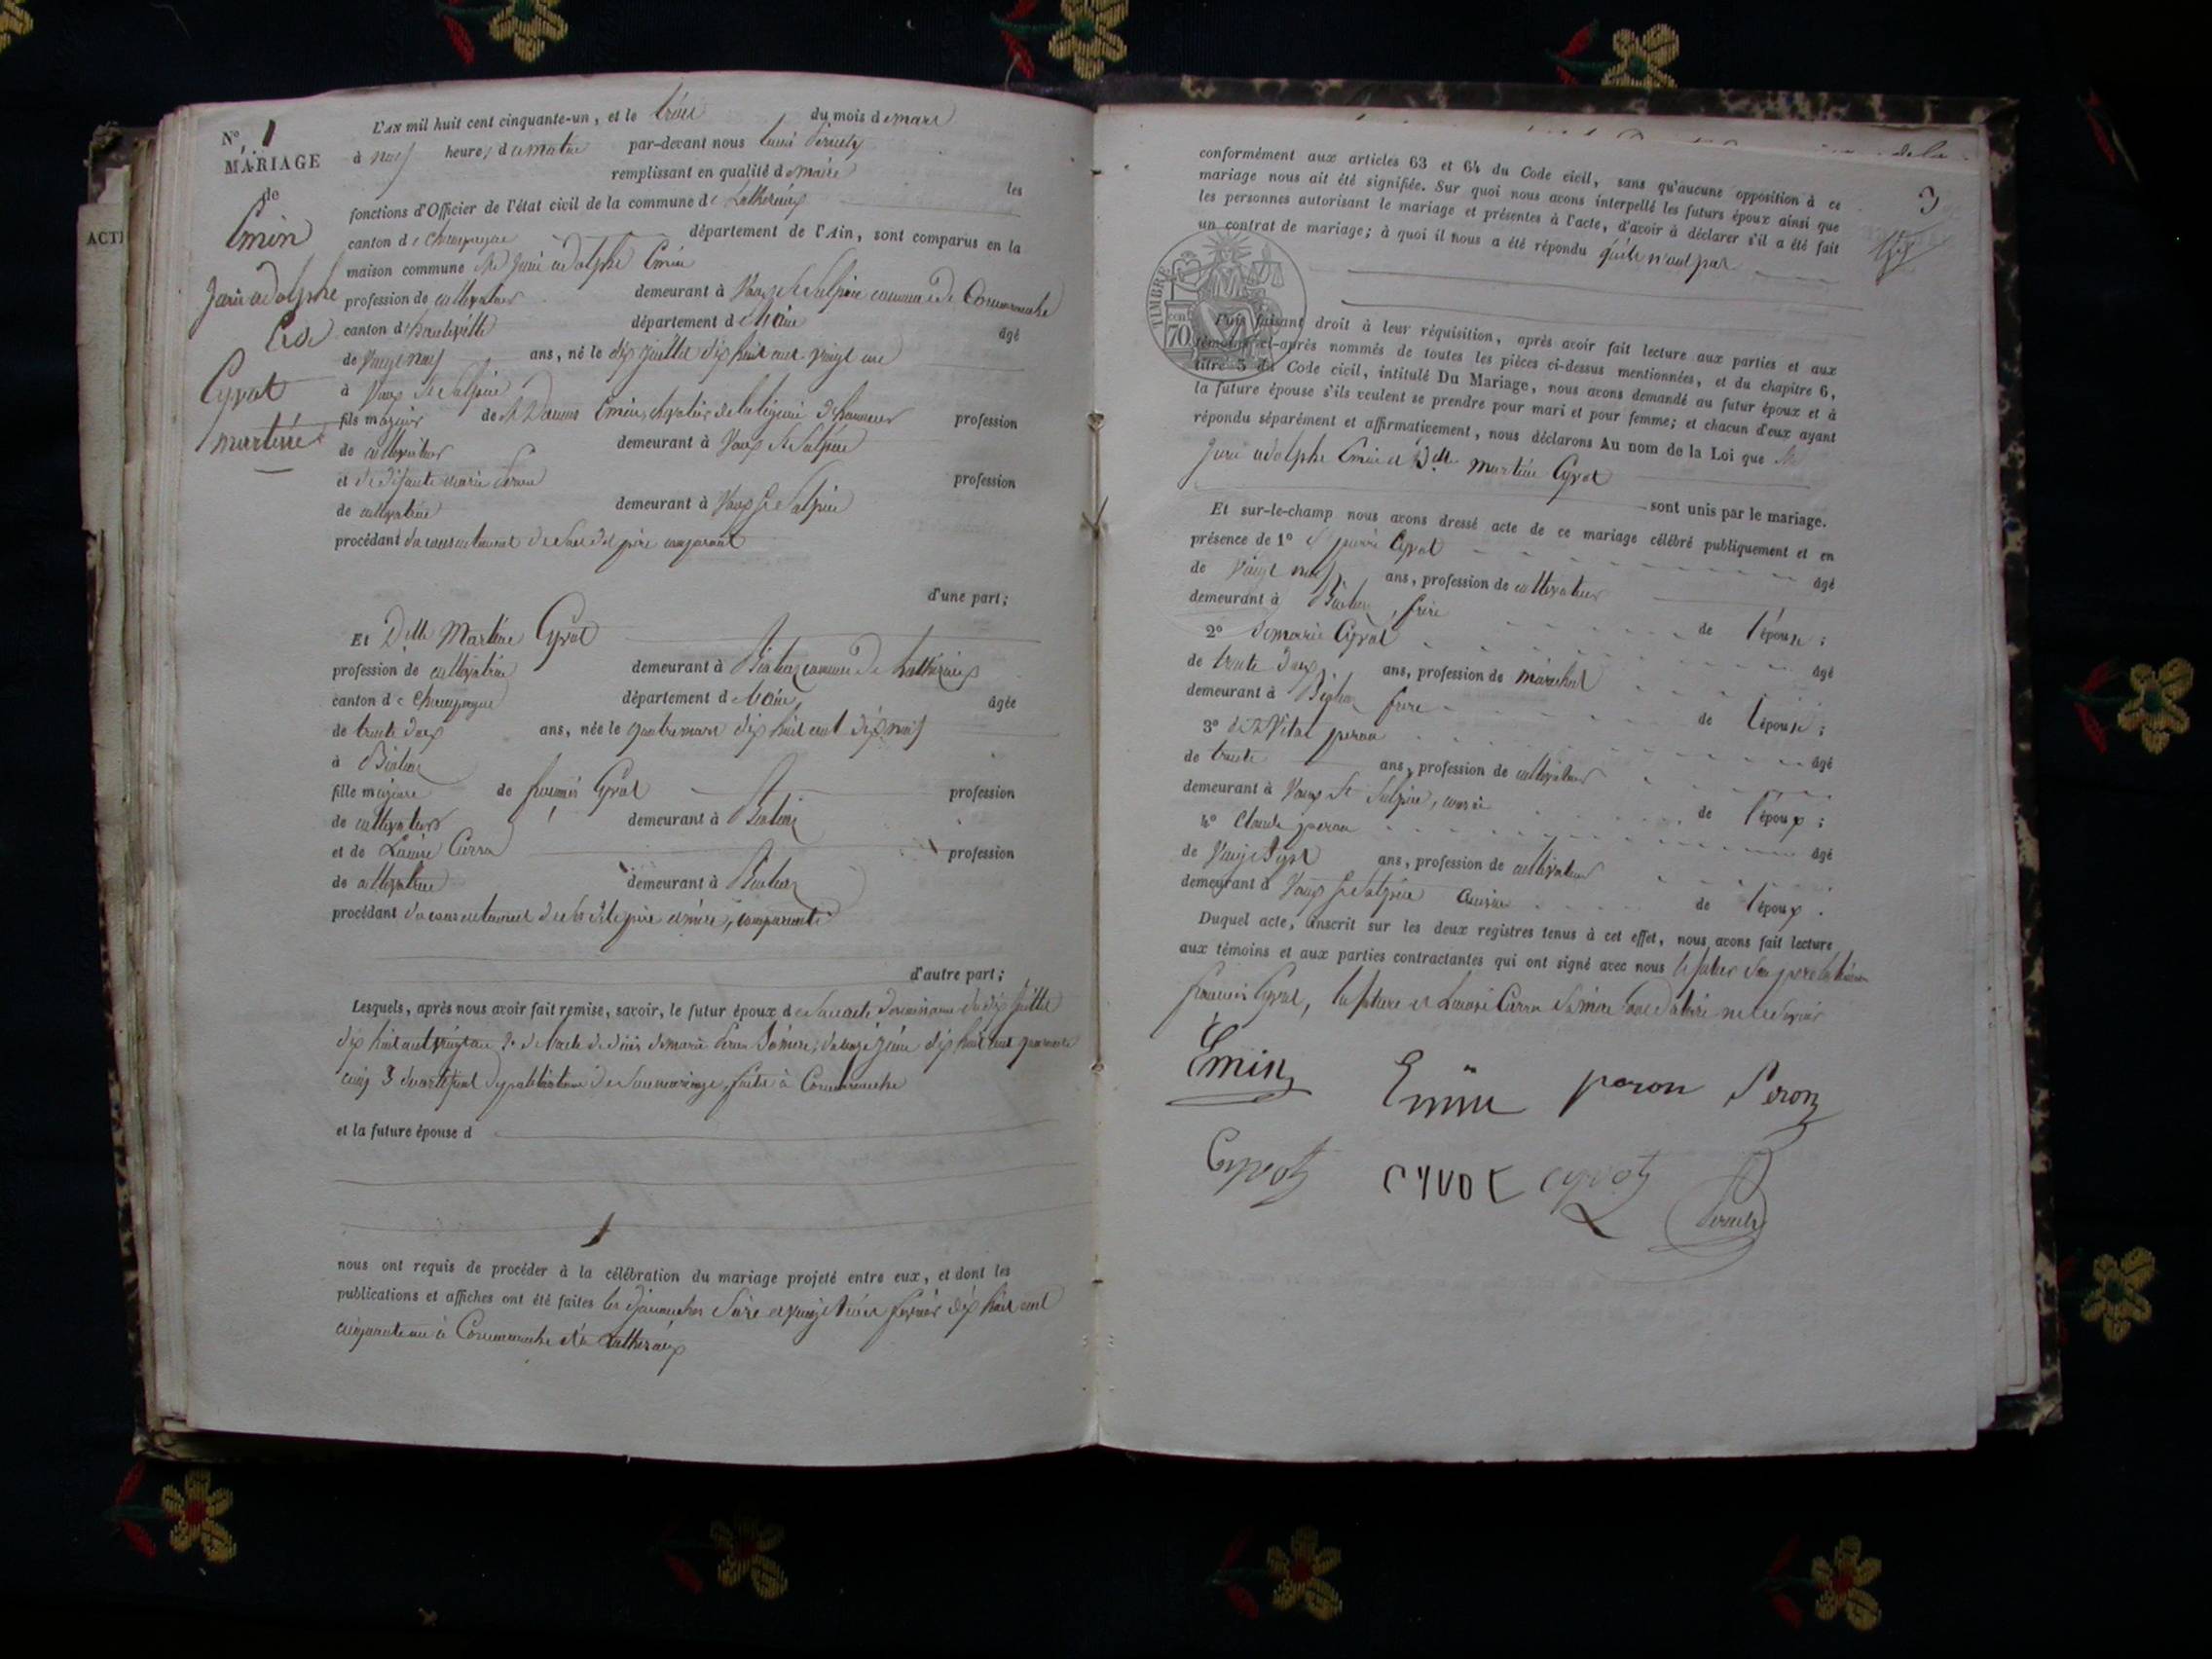 N.° 1
MARIAGE
de
Emin
adolphe
Et de
Cyvot
martine
ACTE
L'AN mil huit cent cinquante-un, et le trois du mois de mars
à neuf heures du matin par-devant nous Louis
remplissant en qualité de maire les
fonctions d'Officier de l'état civil de la commune de Lalleriaz
canton de Champagne département de l'Ain, sont comparus en la
maison commune Sr adolphe Emin
profession de cultivateur demeurant à Vaux St Sulpice commune de Cormaranche
canton d'hauteville département de l'Ain âgé
de vingt neuf ans, né le dix juillet dix huit cent vingt un
à Vaux St Sulpice
fils majeur de Sr Emin, chevalier de la légion d'honneur profession
de cultivateur demeurant à Vaux St Sulpice
et de défunte marie Peron profession
de cultivatrice demeurant à Vaux St Sulpice
procédant du consentement de son dit père comparant
d'une part;
Et Dlle Martine Cyvot
profession de cultivatrice demeurant à commune de
canton de Champagne département de l'Ain âgée
de trente deux ans, née le quatre mars dix huit cent dix neuf
à
fille majeure de françois Cyvot profession
de cultivateur demeurant à
et de Louise Carra profession
de cultivatrice demeurant à
procédant du consentement de ses dits père et mère, comparants
d'autre part;
Lesquels, après nous avoir fait remise, savoir, le futur époux de son acte de naissance du dix juillet
dix huit cent vingt un 2° de l'acte de décès de marie Peron sa mère, du onze juin dix huit cent quarante
cinq 3° du certificat de publications de son mariage, faites à Cormaranche
et la future épouse d
nous ont requis de procéder à la célébration du mariage projeté entre eux, et dont les
publications et affiches ont été faites les dimanches seize et vingt trois février dix huit cent
cinquante un à Cormaranche et à
conformément aux articles 63 et 64 du Code civil, sans qu'aucune opposition à ce
mariage nous ait été signifiée. Sur quoi nous avons interpellé les futurs époux ainsi que
les personnes autorisant le mariage et présentes à l'acte, d'avoir à déclarer s'il a été fait
un contrat de mariage; à quoi il nous a été répondu qu'ils n'ont pas
3
TIMBRE
70 cent
Puis faisant droit à leur réquisition, après avoir fait lecture aux parties et aux
témoins ci-après nommés de toutes les pièces ci-dessus mentionnées, et du chapitre 6,
titre 5 du Code civil, intitulé Du Mariage, nous avons demandé au futur époux et à
la future épouse s'ils veulent se prendre pour mari et pour femme; et chacun d'eux ayant
répondu séparément et affirmativement, nous déclarons Au nom de la Loi que Sr
adolphe Emin et Dlle martine Cyvot
sont unis par le mariage.
Et sur-le-champ nous avons dressé acte de ce mariage célébré publiquement et en
présence de 1° Sr pierre Cyvot âgé
de vingt neuf ans, profession de cultivateur
demeurant à frère de l'épouse;
2° Cyvot âgé
de trente deux ans, profession de maréchal
demeurant à frère de l'épouse;
3° Vital peron âgé
de trente ans, profession de cultivateur
demeurant à Vaux St Sulpice, cousin de l'époux;
4° Claude peron âgé
de vingt sept ans, profession de cultivateur
demeurant à Vaux St Sulpice cousin de l'époux.
Duquel acte, inscrit sur les deux registres tenus à cet effet, nous avons fait lecture
aux témoins et aux parties contractantes qui ont signé avec nous le futur son père les témoins
françois Cyvot, la future et Louise Carra sa mère ne le savoir
Emin Emin peron Peron
Cyvot CYVOT cyvot